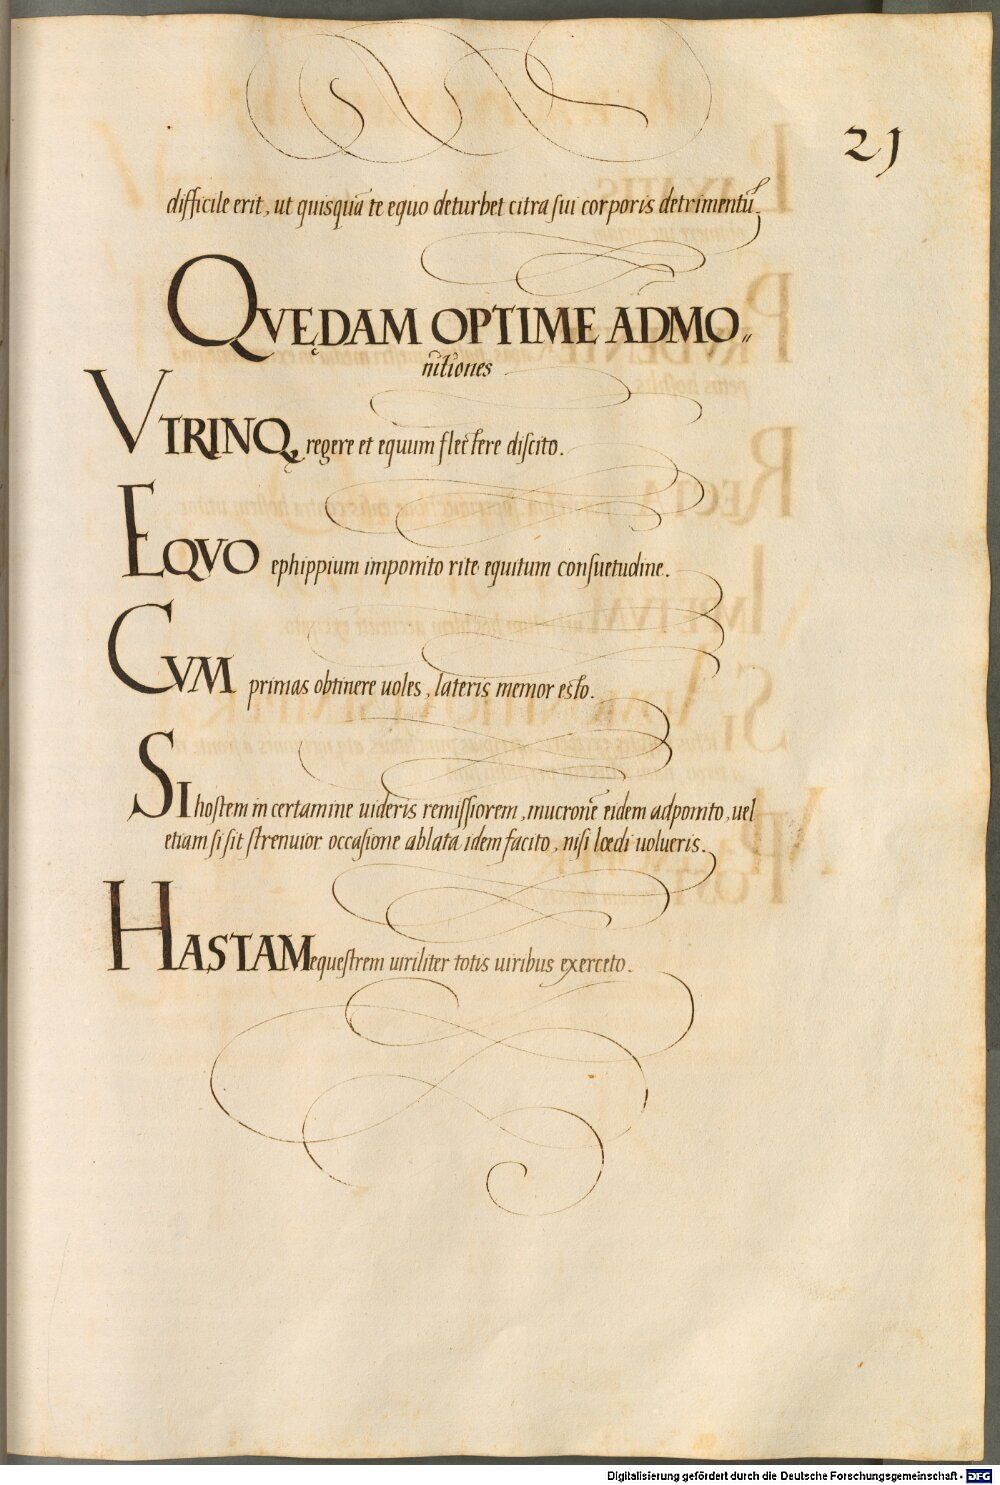 21
difficile erit, ut quisquā te equo deturbet citra sui corporis detrimentū.
QVĘDAM OPTIME ADMO„
nitiones
VTRINQ, regere et equum flectere discito.
EQVO ephippium imponito rite equitum consuetudine.
CVM primas obtinere uoles, lateris memor esto.
SI hostem in certamine uideris remissiorem, mucronē eidem adponito, uel
etiam si sit strenuior occasione ablata idem facito, nisi lœdi uolueris.
HASTAM equestrem uiriliter totis uiribus exerceto.
Digitalisierung gefördert durch die Deutsche Forschungsgemeinschaft - DFG